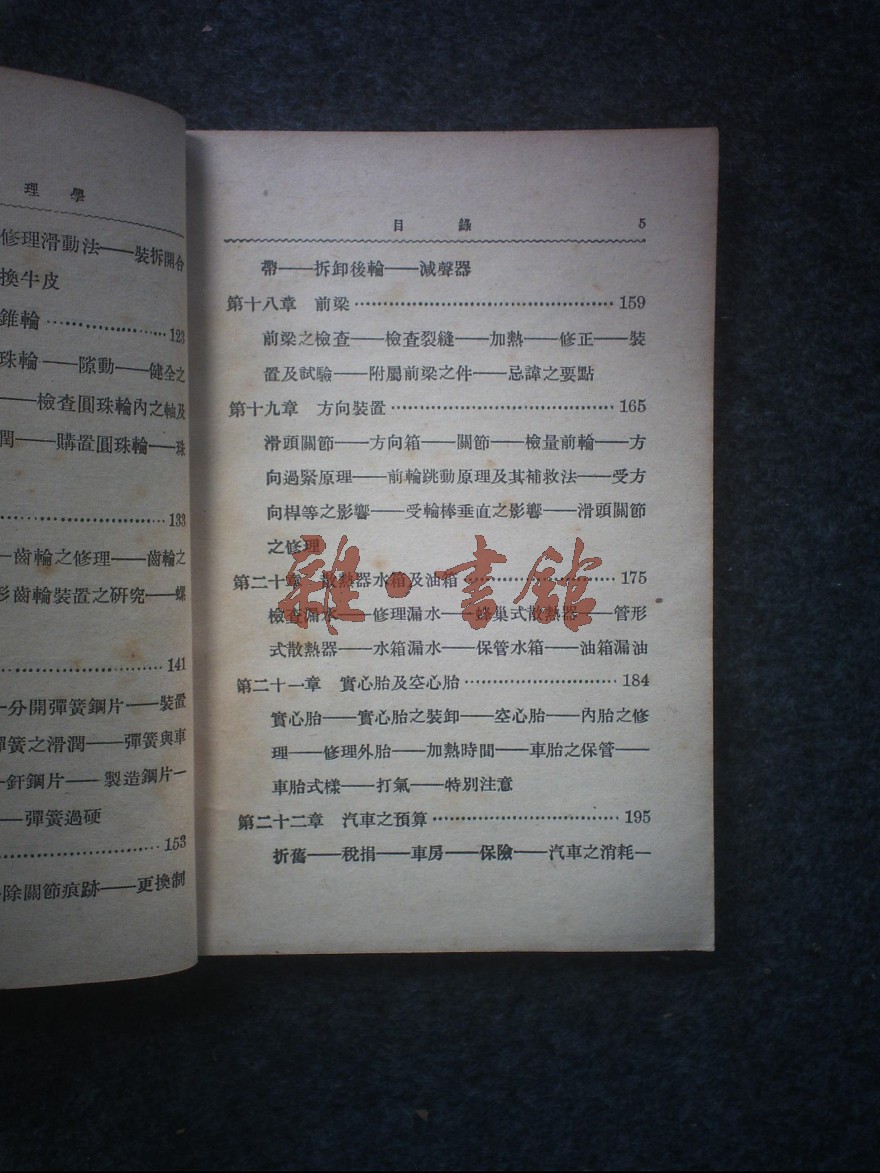 理 學
修理滑動法——裝拆開合
換牛皮
錐輪 ························ 123
珠輪——隙動——健全之
——檢查圓珠輪內之軸及
潤——購置圓珠輪——珠
························ 133
—齒輪之修理——齒輪之
形齒輪裝置之研究——螺
························ 141
—分開彈簧鋼片——裝置
彈簧之滑潤——彈簧與車
—釬鋼片——製造鋼片—
——彈簧過硬
························ 153
除關節痕跡——更換制
目 錄 5
帶——拆卸後輪——減聲器
第十八章 前梁 ························ 159
前梁之檢查——檢查裂縫——加熱——修正——裝
置及試驗——附屬前梁之件——忌諱之要點
第十九章 方向裝置 ························ 165
滑頭關節——方向箱——關節——檢量前輪——方
向過緊原理——前輪跳動原理及其補救法——受方
向桿等之影響——受輪棒垂直之影響——滑頭關節
之修理
第二十章 散熱器水箱及油箱 ························ 175
檢查漏水——修理漏水——蜂巢式散熱器——管形
式散熱器——水箱漏水——保管水箱——油箱漏油
第二十一章 實心胎及空心胎 ························ 184
實心胎——實心胎之裝卸——空心胎——內胎之修
理——修理外胎——加熱時間——車胎之保管——
車胎式樣——打氣——特別注意
第二十二章 汽車之預算 ························ 195
折舊——稅捐——車房——保險——汽車之消耗—
雜·書館